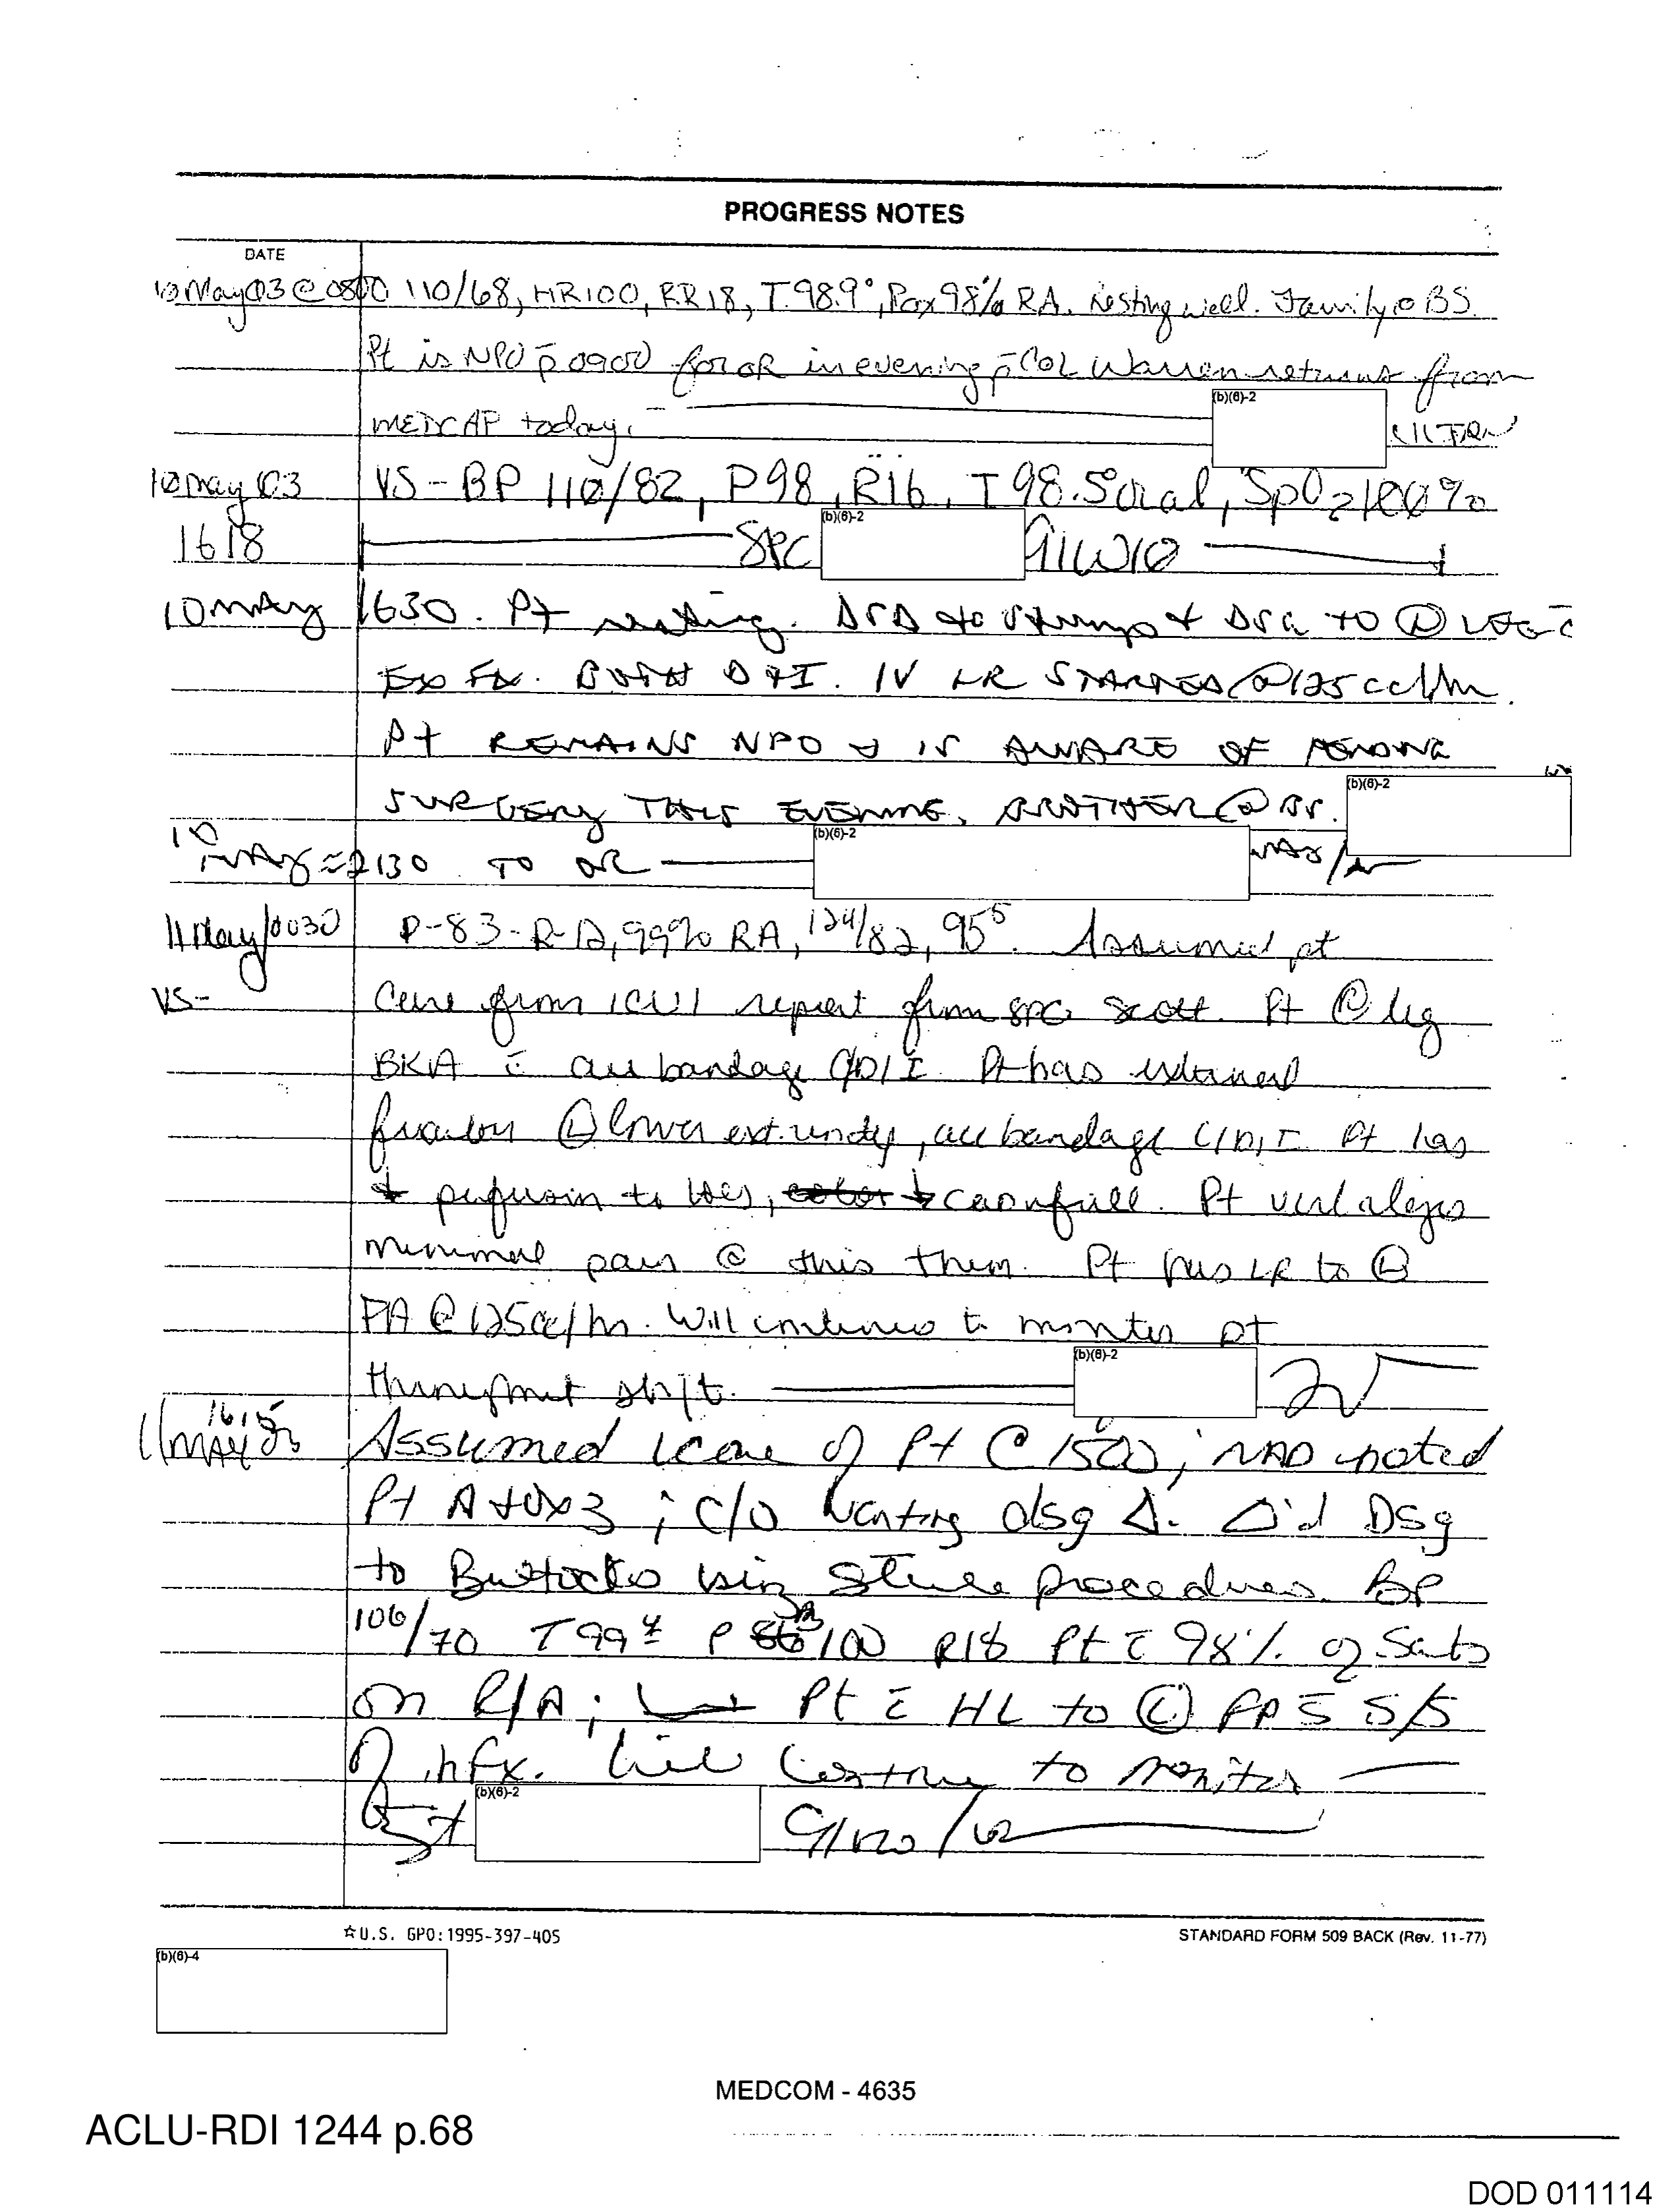 PROGRESS NOTES
DATE
10 May 03 @ 0800 110/68, HR100, RR18, T.98.9°, Pox 98% RA. Resting well. Family @ BS.
Pt is NPO p̄ 0900 for OR in evening p̄ COL Warren returns from
MEDCAP today.
(b)(6)-2
10 May 03 VS - BP 110/82, P98, R16, T 98.5 oral, SpO2 100%
1618 SPC (b)(6)-2 91W10
10 MAY 1630. Pt resting. DSD to stump + DSG to Ⓛ LEG c̄
EX FX. BOTH D+I. IV LR STARTED @ 125 cc/hr.
Pt REMAINS NPO + IS AWARE OF PENDING
SURGERY THIS EVENING. BROTHER @ BS. (b)(6)-2
10 MAY ≈ 2130 TO OR (b)(6)-2
11 May/0030 P-83-R-12, 99% RA, 124/82, 95⁵. Assumed pt
VS- Care from ICU1 report from SPC Scott. Pt Ⓡ leg
BKA c̄ ace bandage C/D/I. Pt has external
fixator Ⓛ lower extremity, ace bandage C/D/I. Pt has
+ perfusion to toes, cap refill. Pt
minimal pain @ this Pt has LR to Ⓛ
FA @ 125cc/hr. Will continue to monitor pt
throughout shift. (b)(6)-2
11 MAY 03 1615 Assumed care of Pt @ 1500; NAD noted
Pt A+Ox3; c/o wanting dsg Δ. Δ'd Dsg
to Buttocks using sterile procedures. BP
106/70 T 99⁴ P 100 R18 Pt c̄ 98% O2 Sats
on R/A; Pt c̄ HL to Ⓛ FA s̄ S/S
of infx. Will continue to monitor
(b)(6)-2
☆U.S. GPO:1995-397-405 STANDARD FORM 509 BACK (Rev. 11-77)
(b)(6)-4
MEDCOM - 4635
ACLU-RDI 1244 p.68
DOD 011114